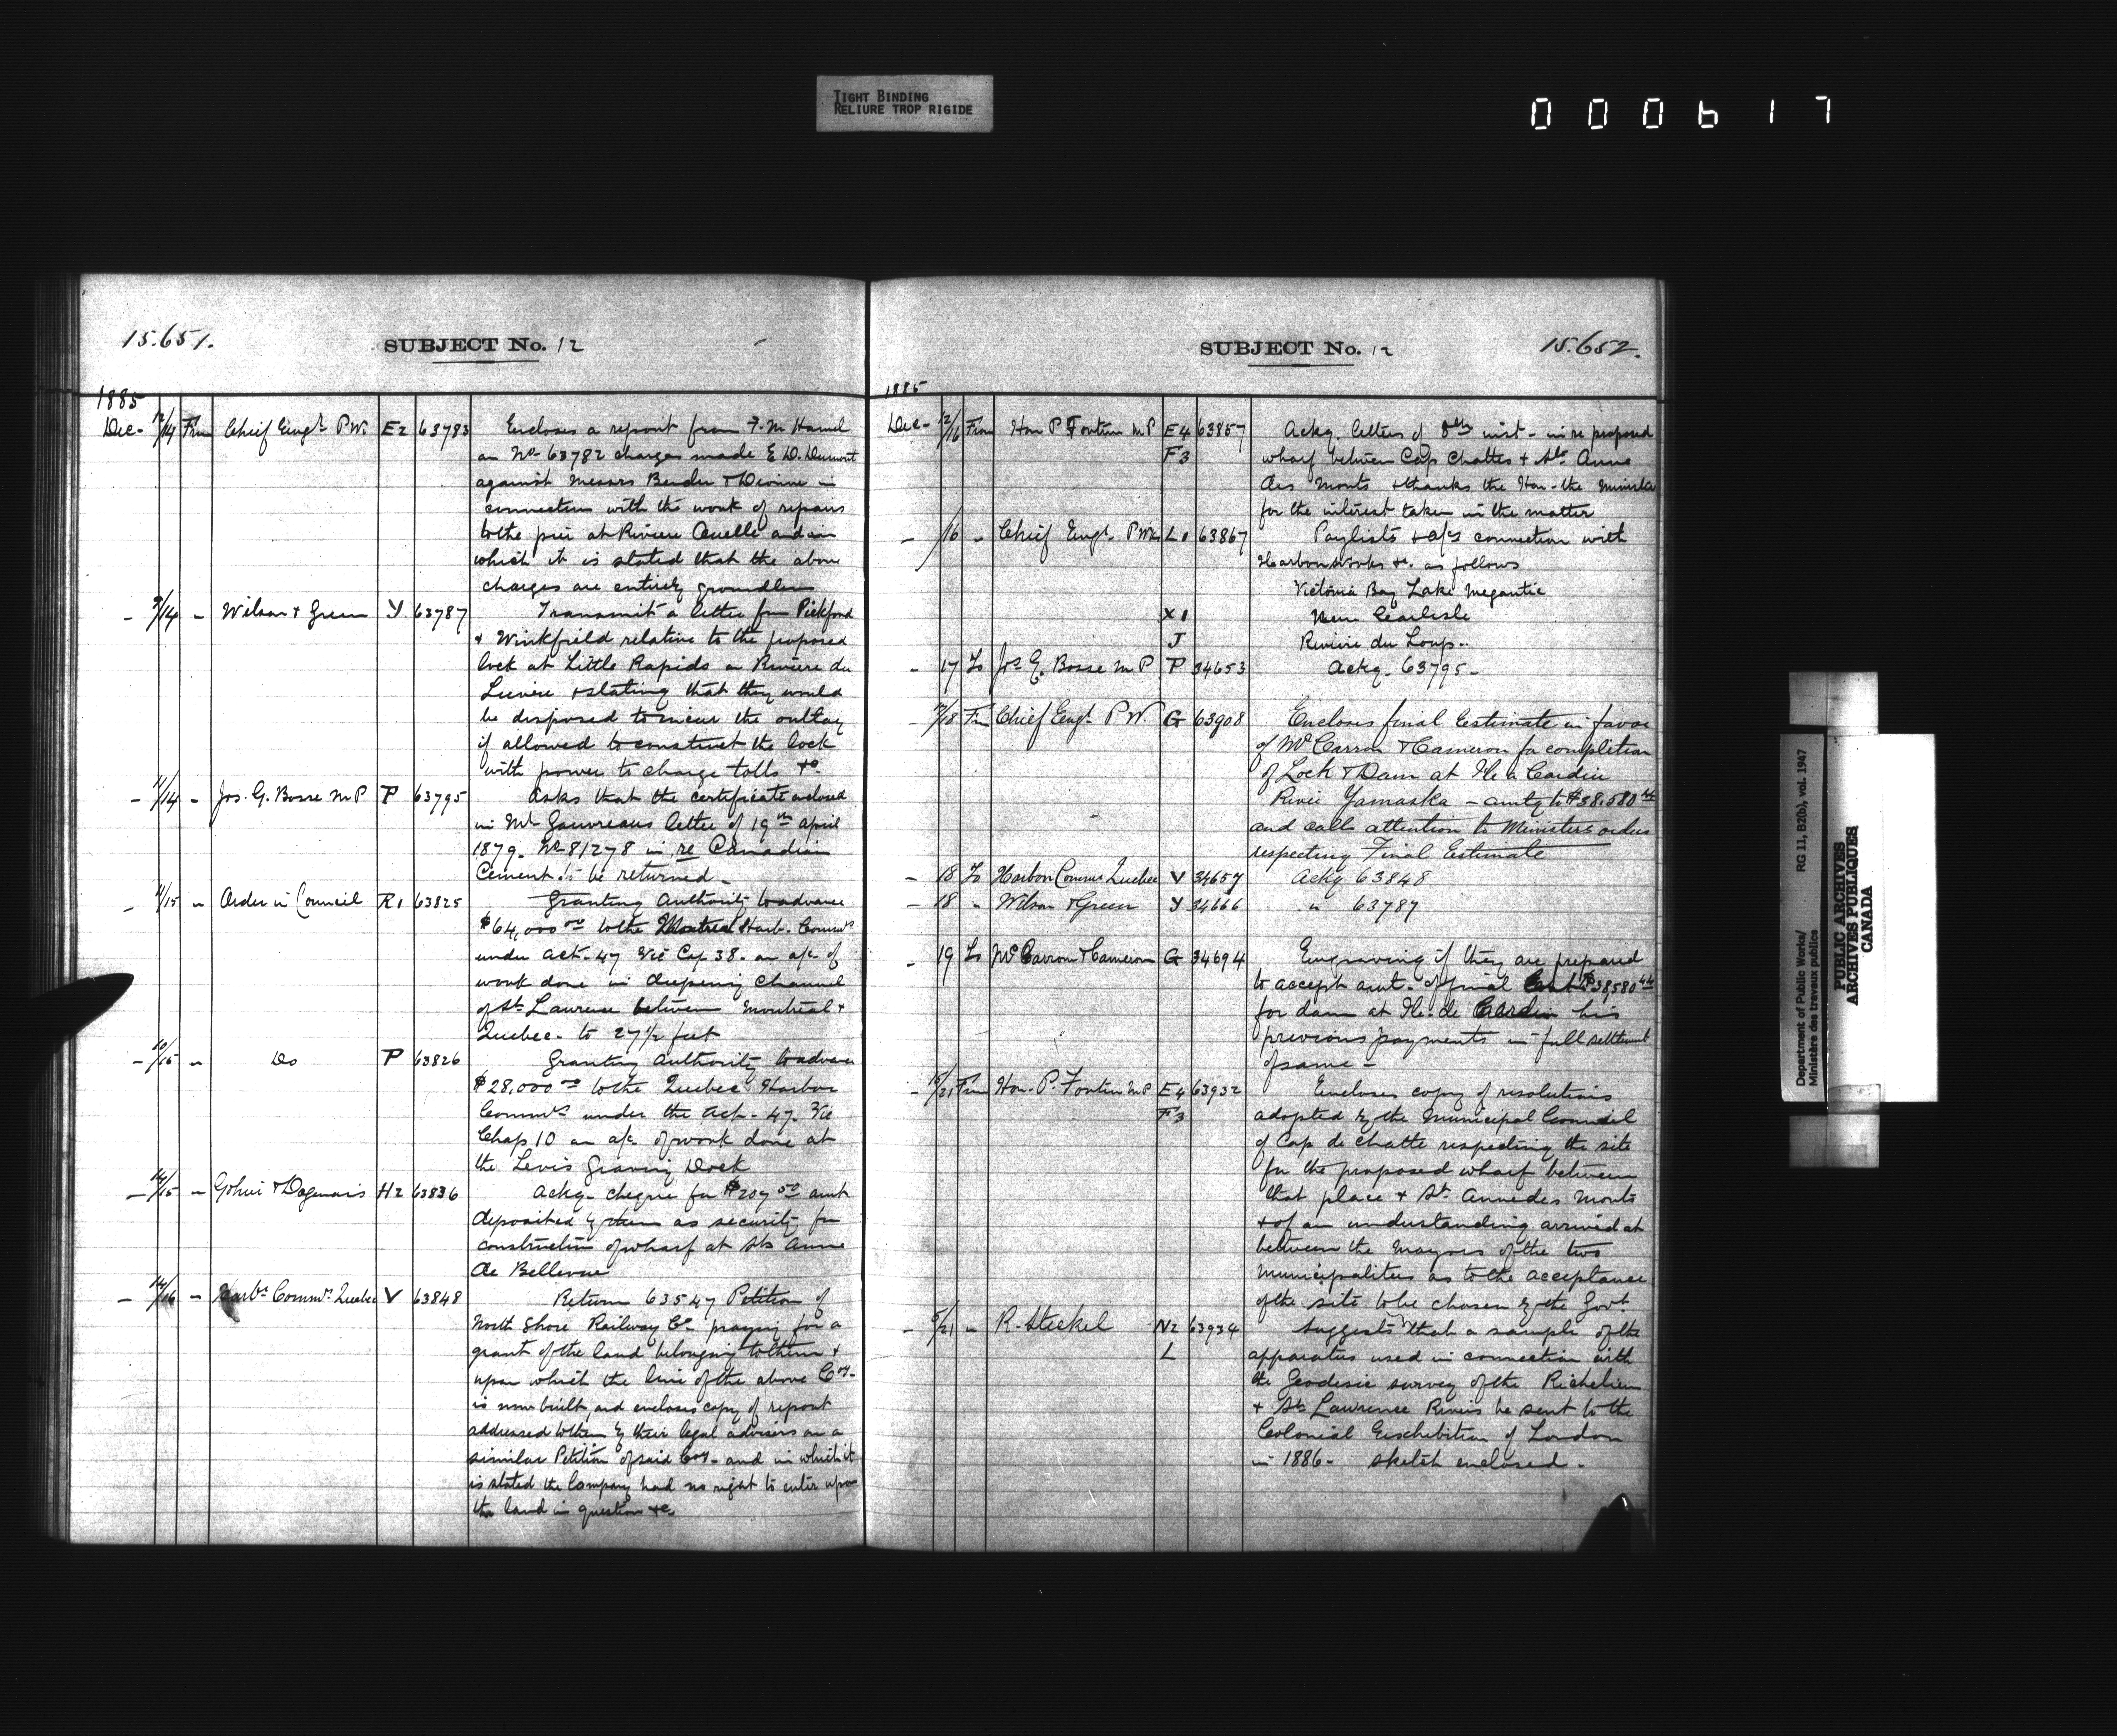 TIGHT BINDING
RELIURE TROP RIGIDE
000617
15.651.
SUBJECT No. 12
1885
Dec - 12/14 From Chief Engr. P.W. E2 63783 Encloses a report from F. M. Hamel
on No 63782 charges made E D. Dumont
against Messrs Bender & Dionne in
connection with the work of repairs
to the pier at Riviere Ouelle and in
which it is stated that the above
charges are entirely groundless
- /14 " Wilson & Green Y. 63787 Transmit a letter from Pickford
& Winkfield relative to the proposed
lock at Little Rapids on Riviere du
Lievre & stating that they would
be disposed to incur the outlay
if allowed to construct the lock
with power to charge tolls &c.
- 11/14 " Jos. G. Bosse M P P 63795 Asks that the certificate enclosed
in Mr Gauvreaus letter of 19th April
1879. No 81278 in re Canadian
Cement to be returned -
- 11/15 " Order in Council R1 63825 Granting Authority to advance
$64,000.00 to the Montreal Harb. Commrs
under act. 47 Vic Cap 38. on a/c of
work done in deepening channel
of St. Lawrence between Montreal &
Quebec - to 27 1/2 feet
- 10/15 " Do P 63826 Granting Authority to advance
$28,000.00 to the Quebec Harbor
Commrs under the Act - 47. Vic
Chap 10 on a/c of work done at
the Levis Graving Dock
- 14/15 " & Dagenais H2 63836 Ackg - cheque for $207.50 amt
deposited by them as security for
construction of wharf at Ste Anne
de Bellevue
- 14/16 " Harbr. Commrs Quebec V 63848 Return 63547 Petition of
North Shore Railway Co. praying for a
grant of the land belonging to them &
upon which the line of the above Coy.
is now built, and encloses copy of report
addressed to them by their legal advisers on a
similar Petition of said Coy. and in which it
is stated the Company had no right to enter upon
the land in question &c.
SUBJECT No. 12
15.652.
1885
Dec - 12/16 From Hon P. Fortin M P E4 63857 Ackg. letters of 8th inst - in re proposed
F3 wharf between Cap Chattes & Ste Anne
des Monts & thanks the Hon - the Minister
for the interest taken in the matter
- /16 " Chief Engr. P Wks L1 63867 Paylists & a/cs connection with
Harbor Works &c. as follows
Victoria Bay Lake Megantic
X1 New Carlisle
J Riviere du Loup..
- 17 To Jos G. Bosse M P P 34653 Ackg. 63795 -
- /18 Fm Chief Engr. P W. G 63908 Encloses final Estimate in favor
of McCarron & Cameron for completion
of Lock & Dam at Ile a Cardin
River Yamaska - amtg to $38.580.44
and calls attention to Ministers orders
respecting Final Estimate
- 18 To Harbor Commrs Quebec V 34657 Ackg 63848
- 18 " Wilson & Green Y 34666 " 63787
- 19 To McCarron & Cameron G 34694 Enquiring if they are prepared
to accept amt. of final Est $38,580.44
for dam at Ile de Cardin his
previous payments in full settlement
of same -
- 15/21 From Hon. P. Fortin M P E4 63932 Encloses copy of resolutions
F3 adopted by the Municipal Council
of Cap de Chatte respecting the site
for the proposed wharf between
that place & St. Anne des Monts
& of an understanding arrived at
between the Mayors of the two
Municipalities as to the acceptance
of the site to be chosen by the Govt.
- 5/21 " R. Steckel N2 63934 Suggests that a sample of the
L apparatus used in connection with
the Geodesic survey of the Richelieu
& St. Lawrence Rivers be sent to the
Colonial Exchibition of London
in 1886 - sketch enclosed -
Department of Public Works/
Ministère des travaux publics
RG 11, B2(b), vol. 1947
PUBLIC ARCHIVES
ARCHIVES PUBLIQUES
CANADA